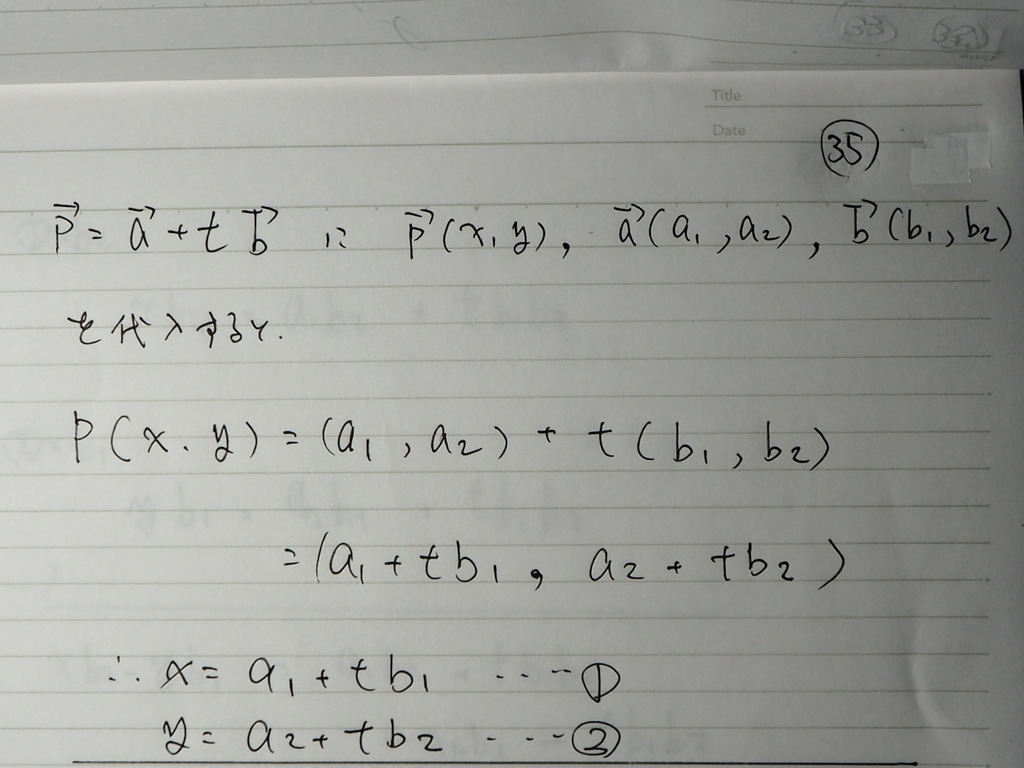 Title
Date
㉟
p⃗ = a⃗ + t b⃗ に p⃗(x, y), a⃗(a₁, a₂), b⃗(b₁, b₂)
を代入すると.
P(x. y) = (a₁, a₂) + t(b₁, b₂)
= (a₁ + tb₁, a₂ + tb₂)
∴ x = a₁ + tb₁ ... ①
y = a₂ + tb₂ ... ②